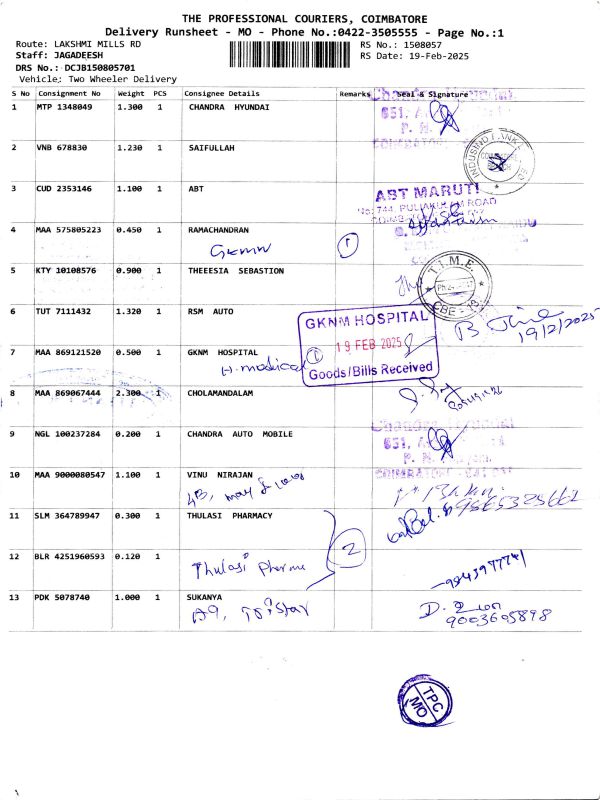 THE PROFESSIONAL COURIERS, COIMBATORE
Delivery Runsheet - MO - Phone No.:0422-3505555 - Page No.:1
Route: LAKSHMI MILLS RD
RS No.: 1508057
Staff: JAGADEESH
RS Date: 19-Feb-2025
DRS No.: DCJB150805701
Vehicle: Two Wheeler Delivery
S No Consignment No Weight PCS Consignee Details Remarks Seal & Signature
1 MTP 1348049 1.300 1 CHANDRA HYUNDAI
651,
2 VNB 678830 1.230 1 SAIFULLAH
INDUSIND BANK
3 CUD 2353146 1.100 1 ABT
ABT MARUTI
No: 744, PULIAKULAM ROAD
4 MAA 575805223 0.450 1 RAMACHANDRAN
GKNM
1
5 KTY 10108576 0.900 1 THEEESIA SEBASTION
T.I.M.E.
CBE - 18
6 TUT 7111432 1.320 1 RSM AUTO
19/2/2025
GKNM HOSPITAL
19 FEB 2025
Goods/Bills Received
7 MAA 869121520 0.500 1 GKNM HOSPITAL
H. medical 1
8 MAA 869067444 2.300 1 CHOLAMANDALAM
9 NGL 100237284 0.200 1 CHANDRA AUTO MOBILE
651,
10 MAA 9000080547 1.100 1 VINU NIRAJAN
4B,
9865325661
11 SLM 364789947 0.300 1 THULASI PHARMACY
2
12 BLR 4251960593 0.120 1
Thulasi Pharma
13 PDK 5078740 1.000 1 SUKANYA
A9,
9003605898
TPC
MO